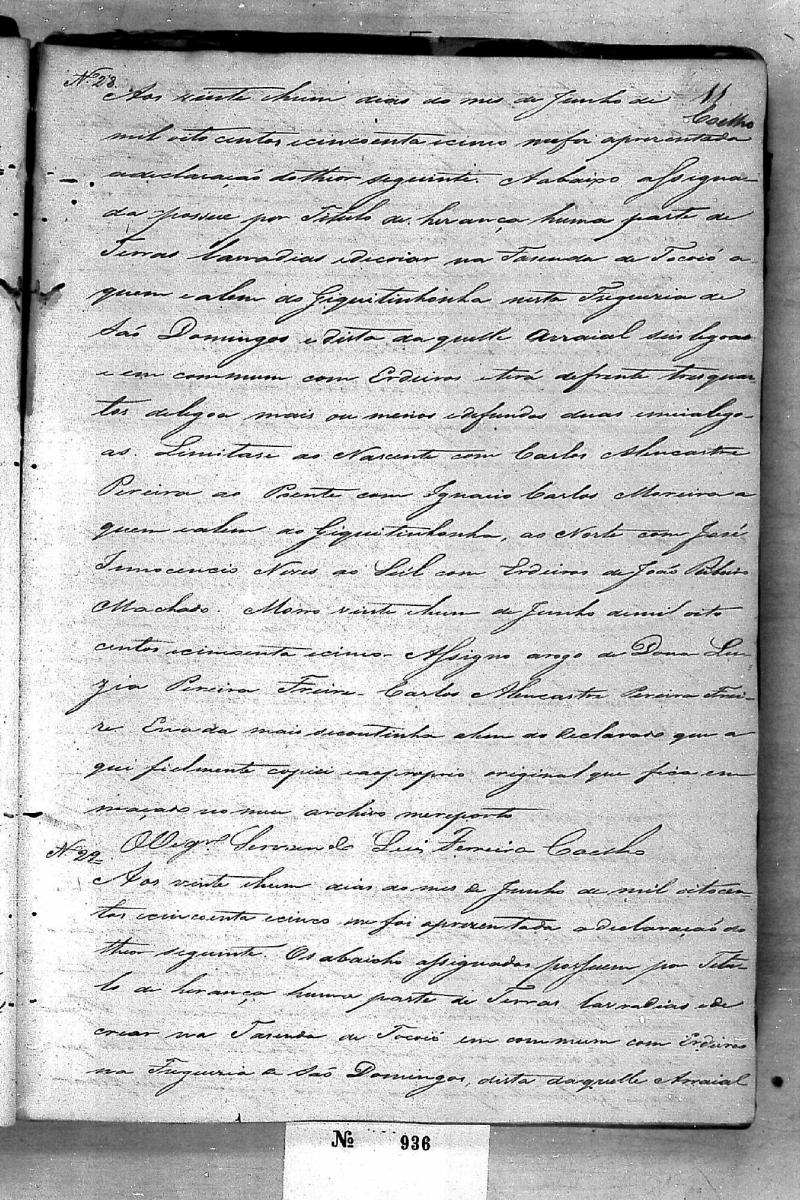 Nº 28. Aos vinte ehum dias do mes de Junho de 11
Coelho
mil oito centos ecincoenta ecinco mefoi aprezentada
adeclaração dotheor seguinte. Aabaixo assigna-
da possue por Titulo de herança huma parte de
Terras lavradias edecriar na Fazenda de Tocoió a
quem ealem do Giquitinhonha nesta Fregueria de
São Domingos edista da quelle Arraial seis legoas
e em commum com Erdeiros eterá defrente tresquar
tos delegoa mais ou menos edefundos duas emeialego-
as. Limitase ao Nascente com Carlos Alencastre
Pereira ao Poente com Ignacio Carlos Moreira a
quem ealem do Giquitinhonha, ao Norte com José
Innocencio Neves ao Sul com Erdeiros de João Ribeiro
Machado. Morro vinte ehum de Junho demil oito
centos ecincoenta ecinco. Assigno arogo de Dona Lu-
zia Pereira Freire. Carlos Alencastre Pereira Frei-
re. Enada mais secontinha alem do declarado que a
qui fielmente copiei eaoproprio original que fica em
maçado no meu archivo mereporto
O Vigrº Luis Ferreira Coelho
Nº 29 Aos vinte ehum dias do mes de Junho de mil oitocen-
tos ecincoenta ecinco me foi aprezentada a declaração do
theor seguinte. Os abaicho assignados possuem por Titu-
lo de herança huma parte de Terras lavradias ede
crear na Fazenda de Tocoió em commum com Erdeiros
na Fregueria de São Domingos, dista daquelle Arraial
Nº 936